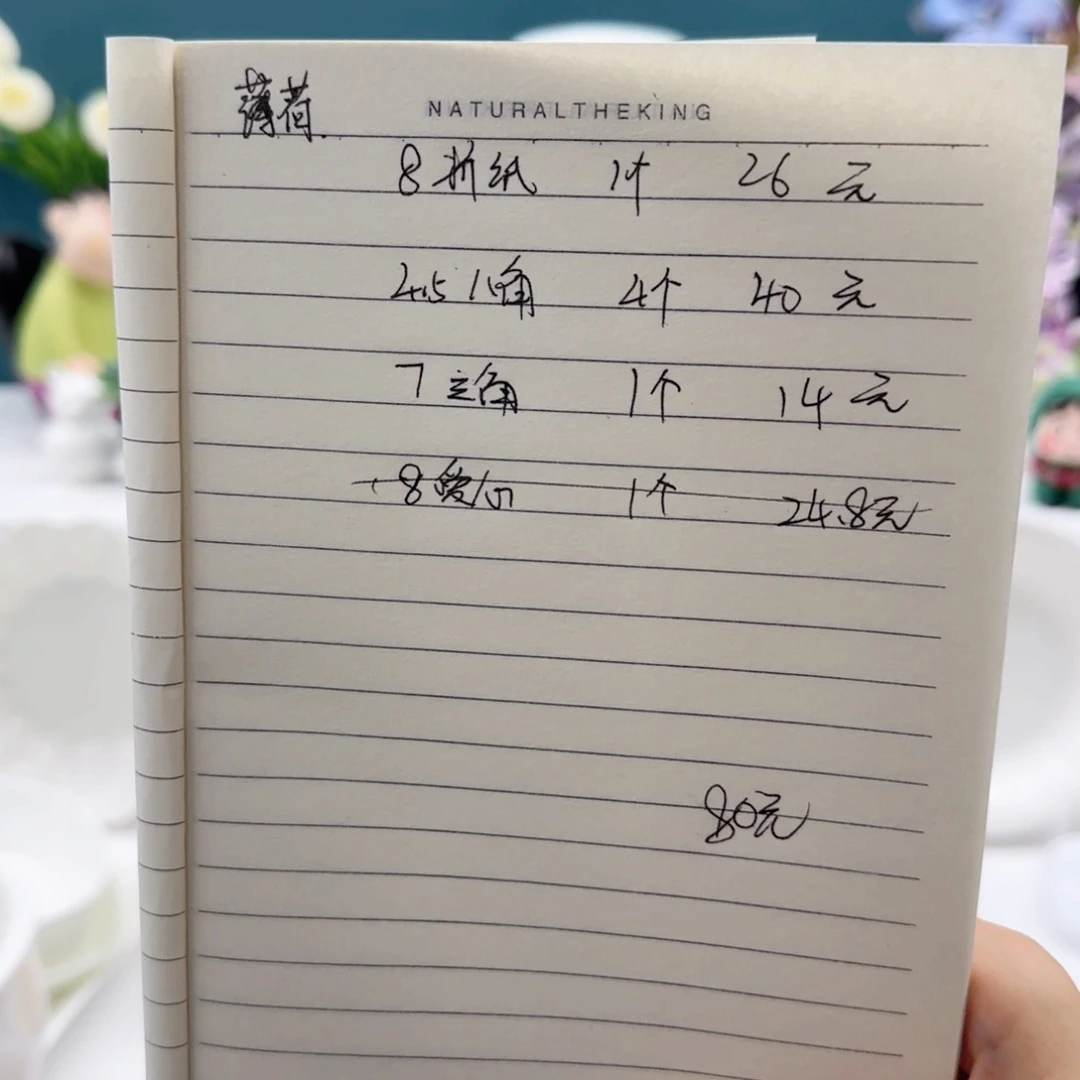 薄荷
NATURALTHEKING
8折纸 1个 26元
4.5八角 4个 40元
7立角 1个 14元
8爱心 1个 24.8元
80元